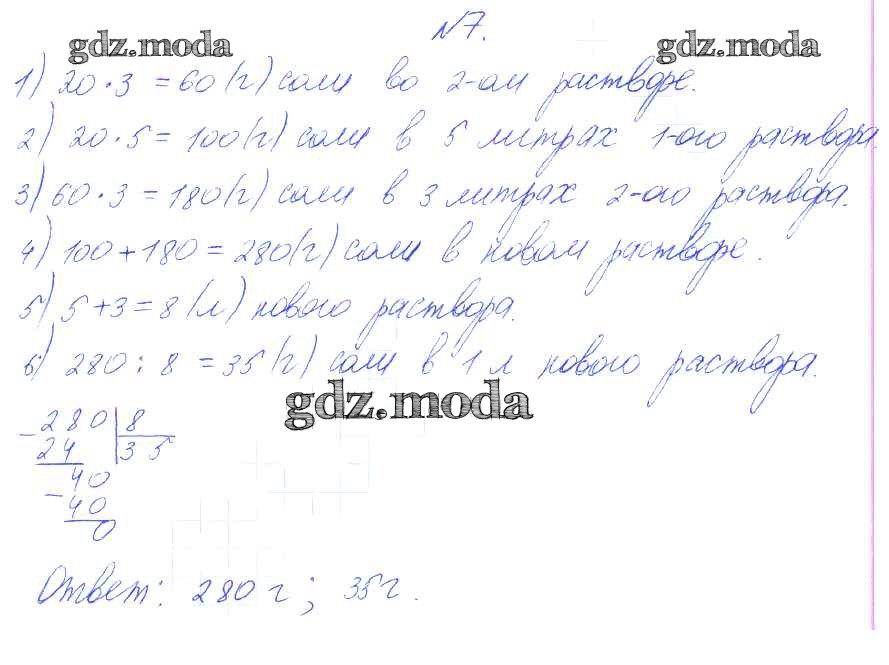 №7.
gdz.moda gdz.moda
1) 20 · 3 = 60 (г) соли во 2-ом растворе.
2) 20 · 5 = 100 (г) соли в 5 литрах 1-ого раствора.
3) 60 · 3 = 180 (г) соли в 3 литрах 2-ого раствора.
4) 100 + 180 = 280 (г) соли в новом растворе.
5) 5 + 3 = 8 (л) нового раствора.
6) 280 : 8 = 35 (г) соли в 1 л нового раствора.
gdz.moda
- 280 | 8
24 | 35
40
- 40
0
Ответ: 280 г; 35 г.